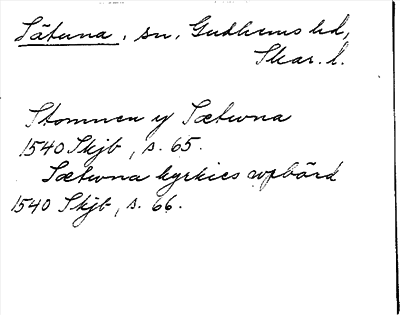 Sätuna, sn, Gudhems hd,
Skar. l.
Stomnen y Sætwna
1540 Skjb, s. 65.
Sætwna kyrkies upbörd
1540 Skjb, s. 66.